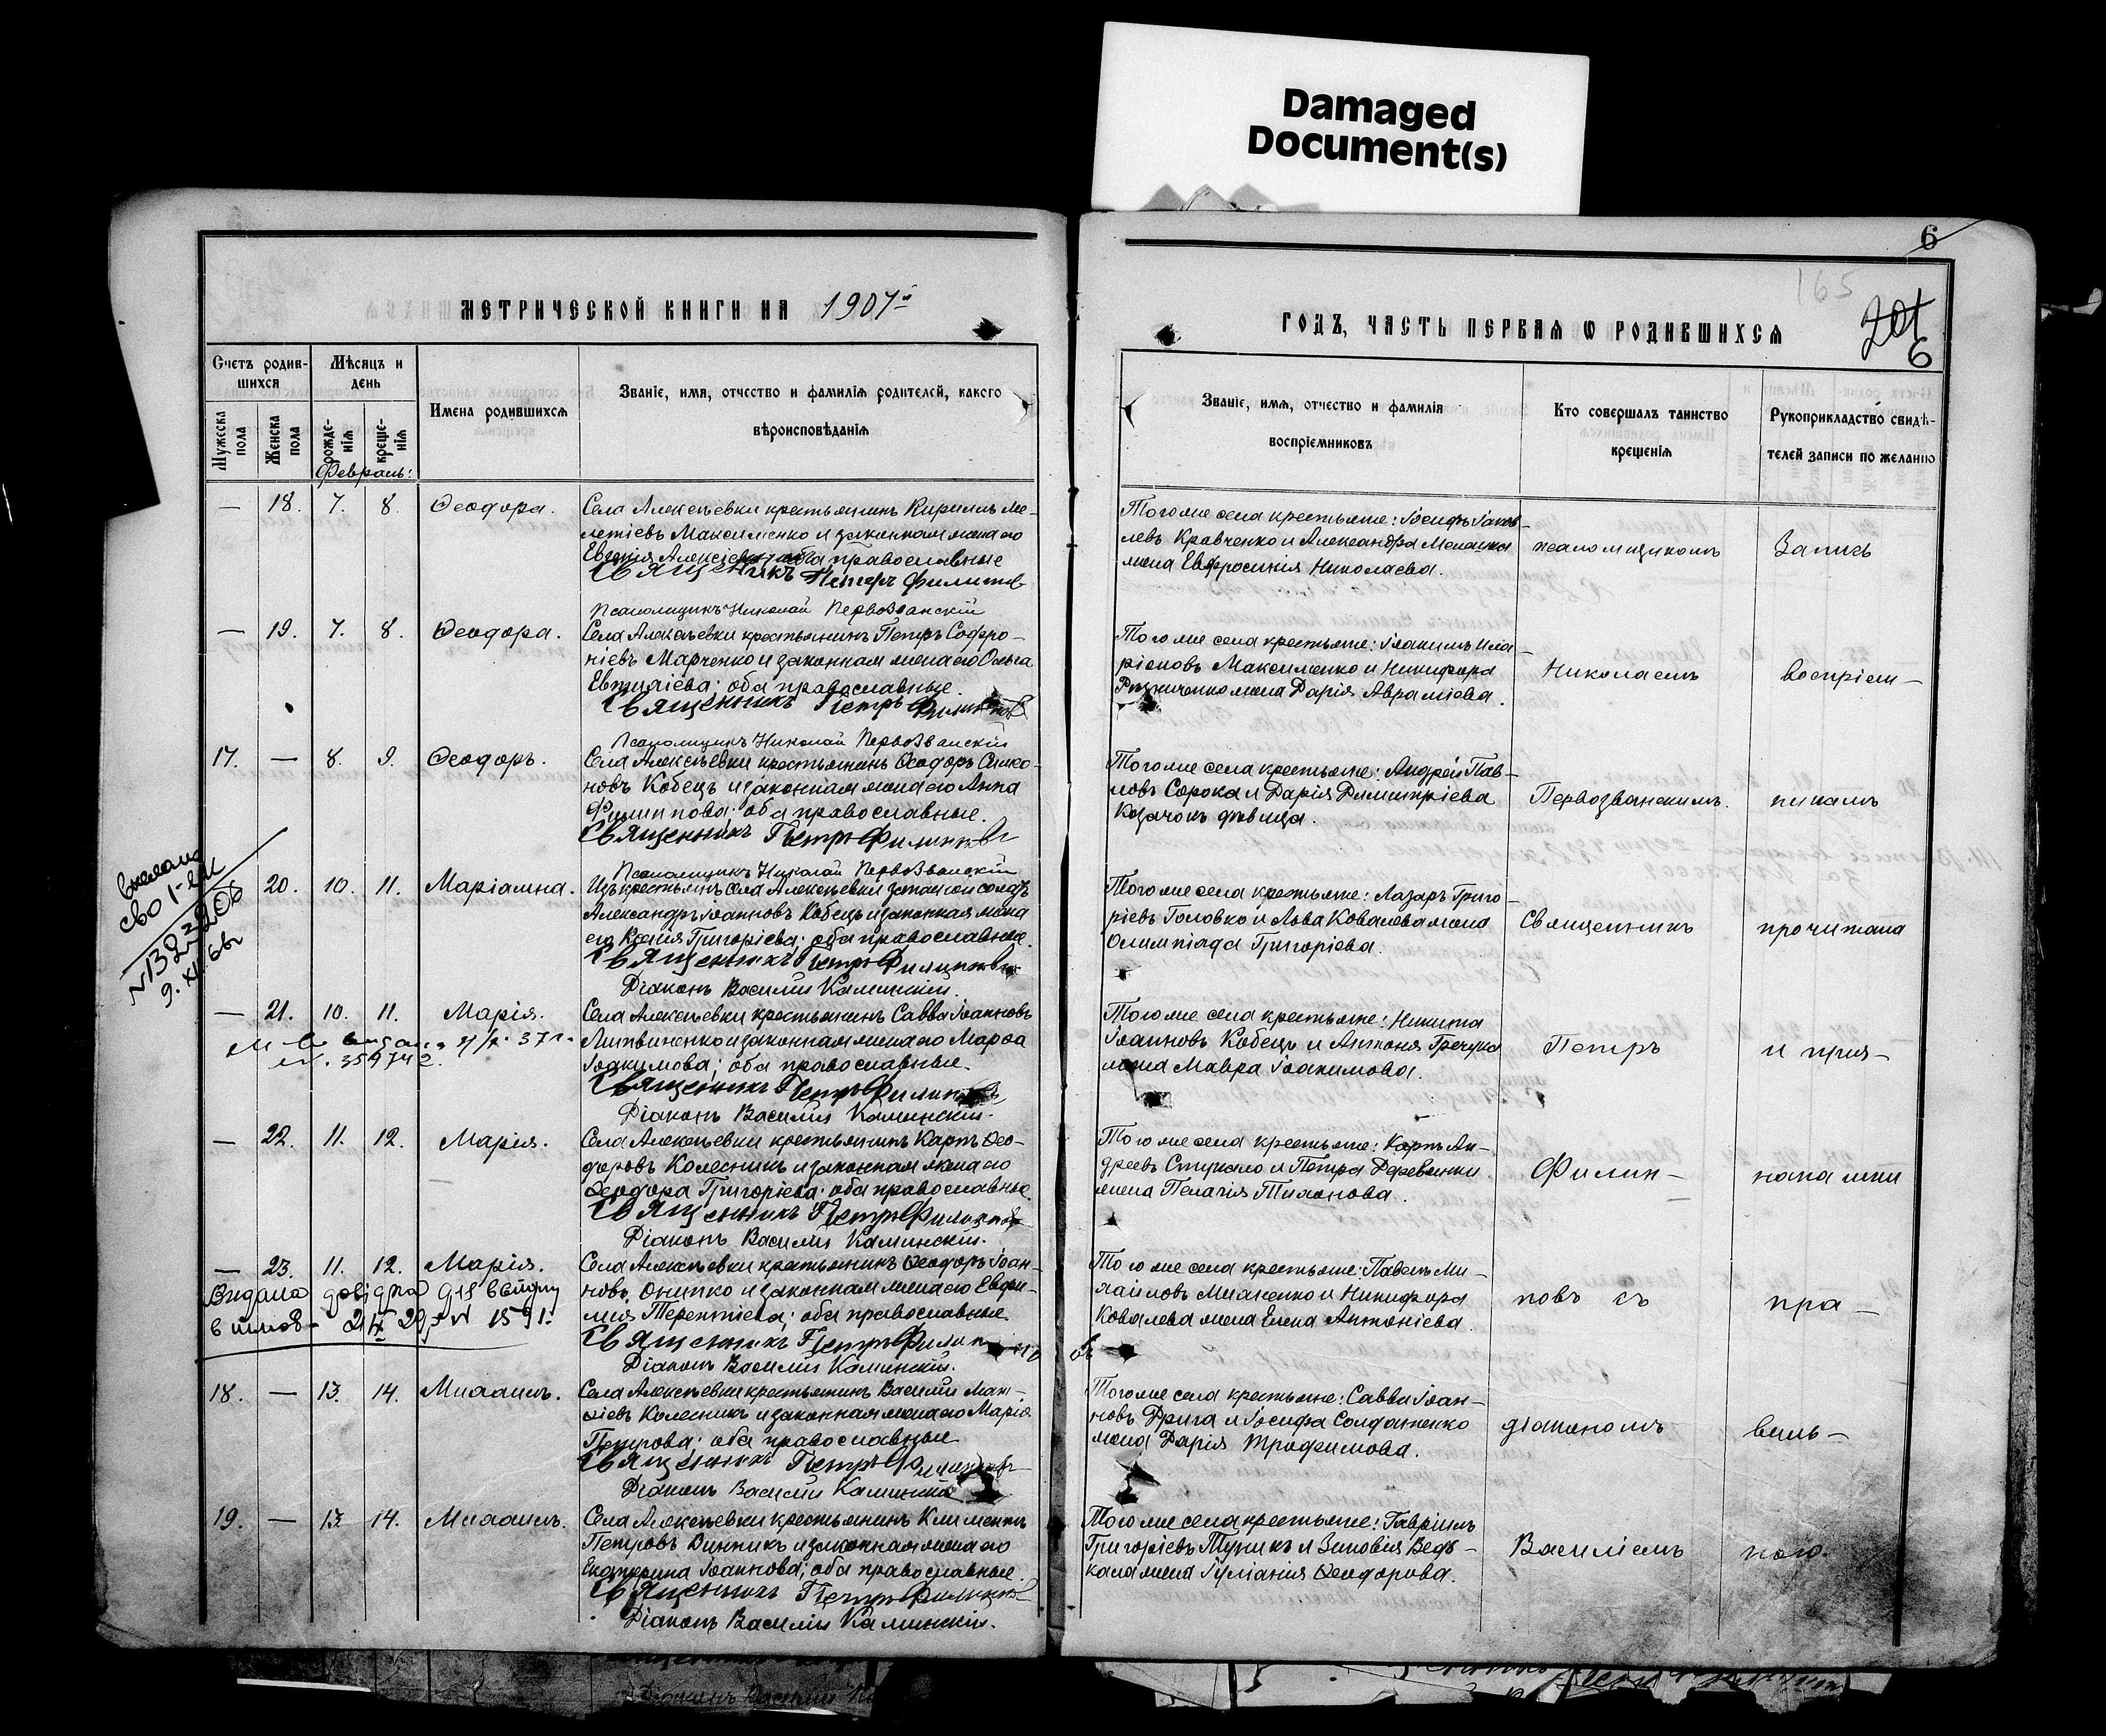 Damaged
Document(s)
6
165
201
6
МЕТРИЧЕСКОЙ КНИГИ НА 1907й
ГОДЪ, ЧАСТЬ ПЕРВАЯ Ѡ РОДИВШИХСЯ
Счетъ родив-
шихся
Мѣсяцъ и
день
Имена родившихся
Званіе, имя, отчество и фамилія родителей, какого
вѣроисповѣданія
Мужеска
пола
Женска
пола
рожде-
нія
креще-
нія
Февраль:
Званіе, имя, отчество и фамилія
воспріемниковъ
Кто совершалъ таинство
крещенія
Рукоприкладство свидѣ-
телей записи по желанію
— 18. 7. 8. Ѳеодора.
Села Алексѣевки крестьянинъ Кириллъ Ме-
летіевъ Максименко и законная жена его
Евгенія Алексіева; оба православные
Священникъ Петръ Филиппов
Псаломщикъ Николай Первозванскій
Того же села крестьяне: Іосифъ Іаков-
левъ Кравченко и Александра
жена Евфросинія Николаева.
псаломщикомъ
Запись
— 19. 7. 8. Ѳеодора.
Села Алексѣевки крестьянинъ Петръ Софро-
ніевъ Марченко и законная жена его Ольга
Евтихіева; оба православные.
Священникъ Петръ Филиппов
Псаломщикъ Николай Первозванскій
Того же села крестьяне: Іоакимъ Ила-
ріоновъ Максименко и Никифора
Резниченко жена Дарія Авраміева.
Николаемъ
воспріем-
17. — 8. 9. Ѳеодоръ.
Села Алексѣевки крестьянинъ Ѳеодоръ Симо-
новъ Кобецъ и законная жена его Анна
Филиппова; оба православные.
Священникъ Петръ Филиппов
Псаломщикъ Николай Первозванскій
Того же села крестьяне: Андрей Пав-
ловъ Сорока и Дарія Димитріева
Козачокъ дѣвица.
Первозванскимъ.
никамъ
№ 1323208
9. XII. 66г
20. 10. 11. Маріамна.
Изъ крестьянъ села Алексѣевки запасной солдатъ
Александръ Іоанновъ Кобецъ и законная жена
его Ксенія Григоріева; оба православные.
Священникъ Петръ Филиппов
Діаконъ Василій Калинскій.
Того же села крестьяне: Лазарь Григо-
ріевъ Головко и Льва Ковалева жена
Олимпіада Григоріева.
Священникъ
прочитана
— 21. 10. 11. Марія.
37 г.
359742.
Села Алексѣевки крестьянинъ Савва Іоанновъ
Литвиненко и законная жена его Марѳа
Іоакимова; оба православные.
Священникъ Петръ Филиппов
Діаконъ Василій Калинскій.
Того же села крестьяне: Никита
Іоанновъ Кобецъ и Антонія Гречука
жена Мавра Іоакимова.
Петръ
и при-
— 22. 11. 12. Марія.
Села Алексѣевки крестьянинъ Карпъ Ѳео-
доровъ Колесникъ и законная жена его
Ѳеодора Григоріева; оба православные.
Священникъ Петръ Филиппов
Діаконъ Василій Калинскій.
Того же села крестьяне: Карпъ Ан-
дреевъ Стукало и Петра Деревянки
жена Пелагія Тихонова.
Филип-
— 23. 11. 12. Марія.
Видана довідка для вступу
в шлюб 2/IX 29р № 1591.
Села Алексѣевки крестьянинъ Ѳеодоръ Іоан-
новъ Онипко и законная жена его Евфи-
мія Терентіева; оба православные.
Священникъ Петръ Филиппов
Діаконъ Василій Калинскій.
Того же села крестьяне: Павелъ Ми-
хаиловъ Михненко и Никифора
Ковалева жена Елена Антоніева.
повъ съ
пра-
18. — 13. 14. Михаилъ.
Села Алексѣевки крестьянинъ Василій Мак-
сіевъ Колесникъ и законная жена его Марія
Петрова; оба православные
Священникъ Петръ Филиппов
Діаконъ Василій Калинскій
Того же села крестьяне: Савва Іоан-
новъ Дрига и Іосифа Солдатенко
жена Дарія Трофимова.
діакономъ
виль-
19. — 13. 14. Михаилъ.
Села Алексѣевки крестьянинъ Климентъ
Петровъ Динникъ и законная жена его
Екатерина Іоаннова; оба православные.
Священникъ Петръ Филиппов
Діаконъ Василій Калинскій.
Того же села крестьяне: Гавріилъ
Григоріевъ Тупикъ и Зиновія Ведь-
кала жена Іуліанія Ѳеодорова.
Василіемъ
ною.